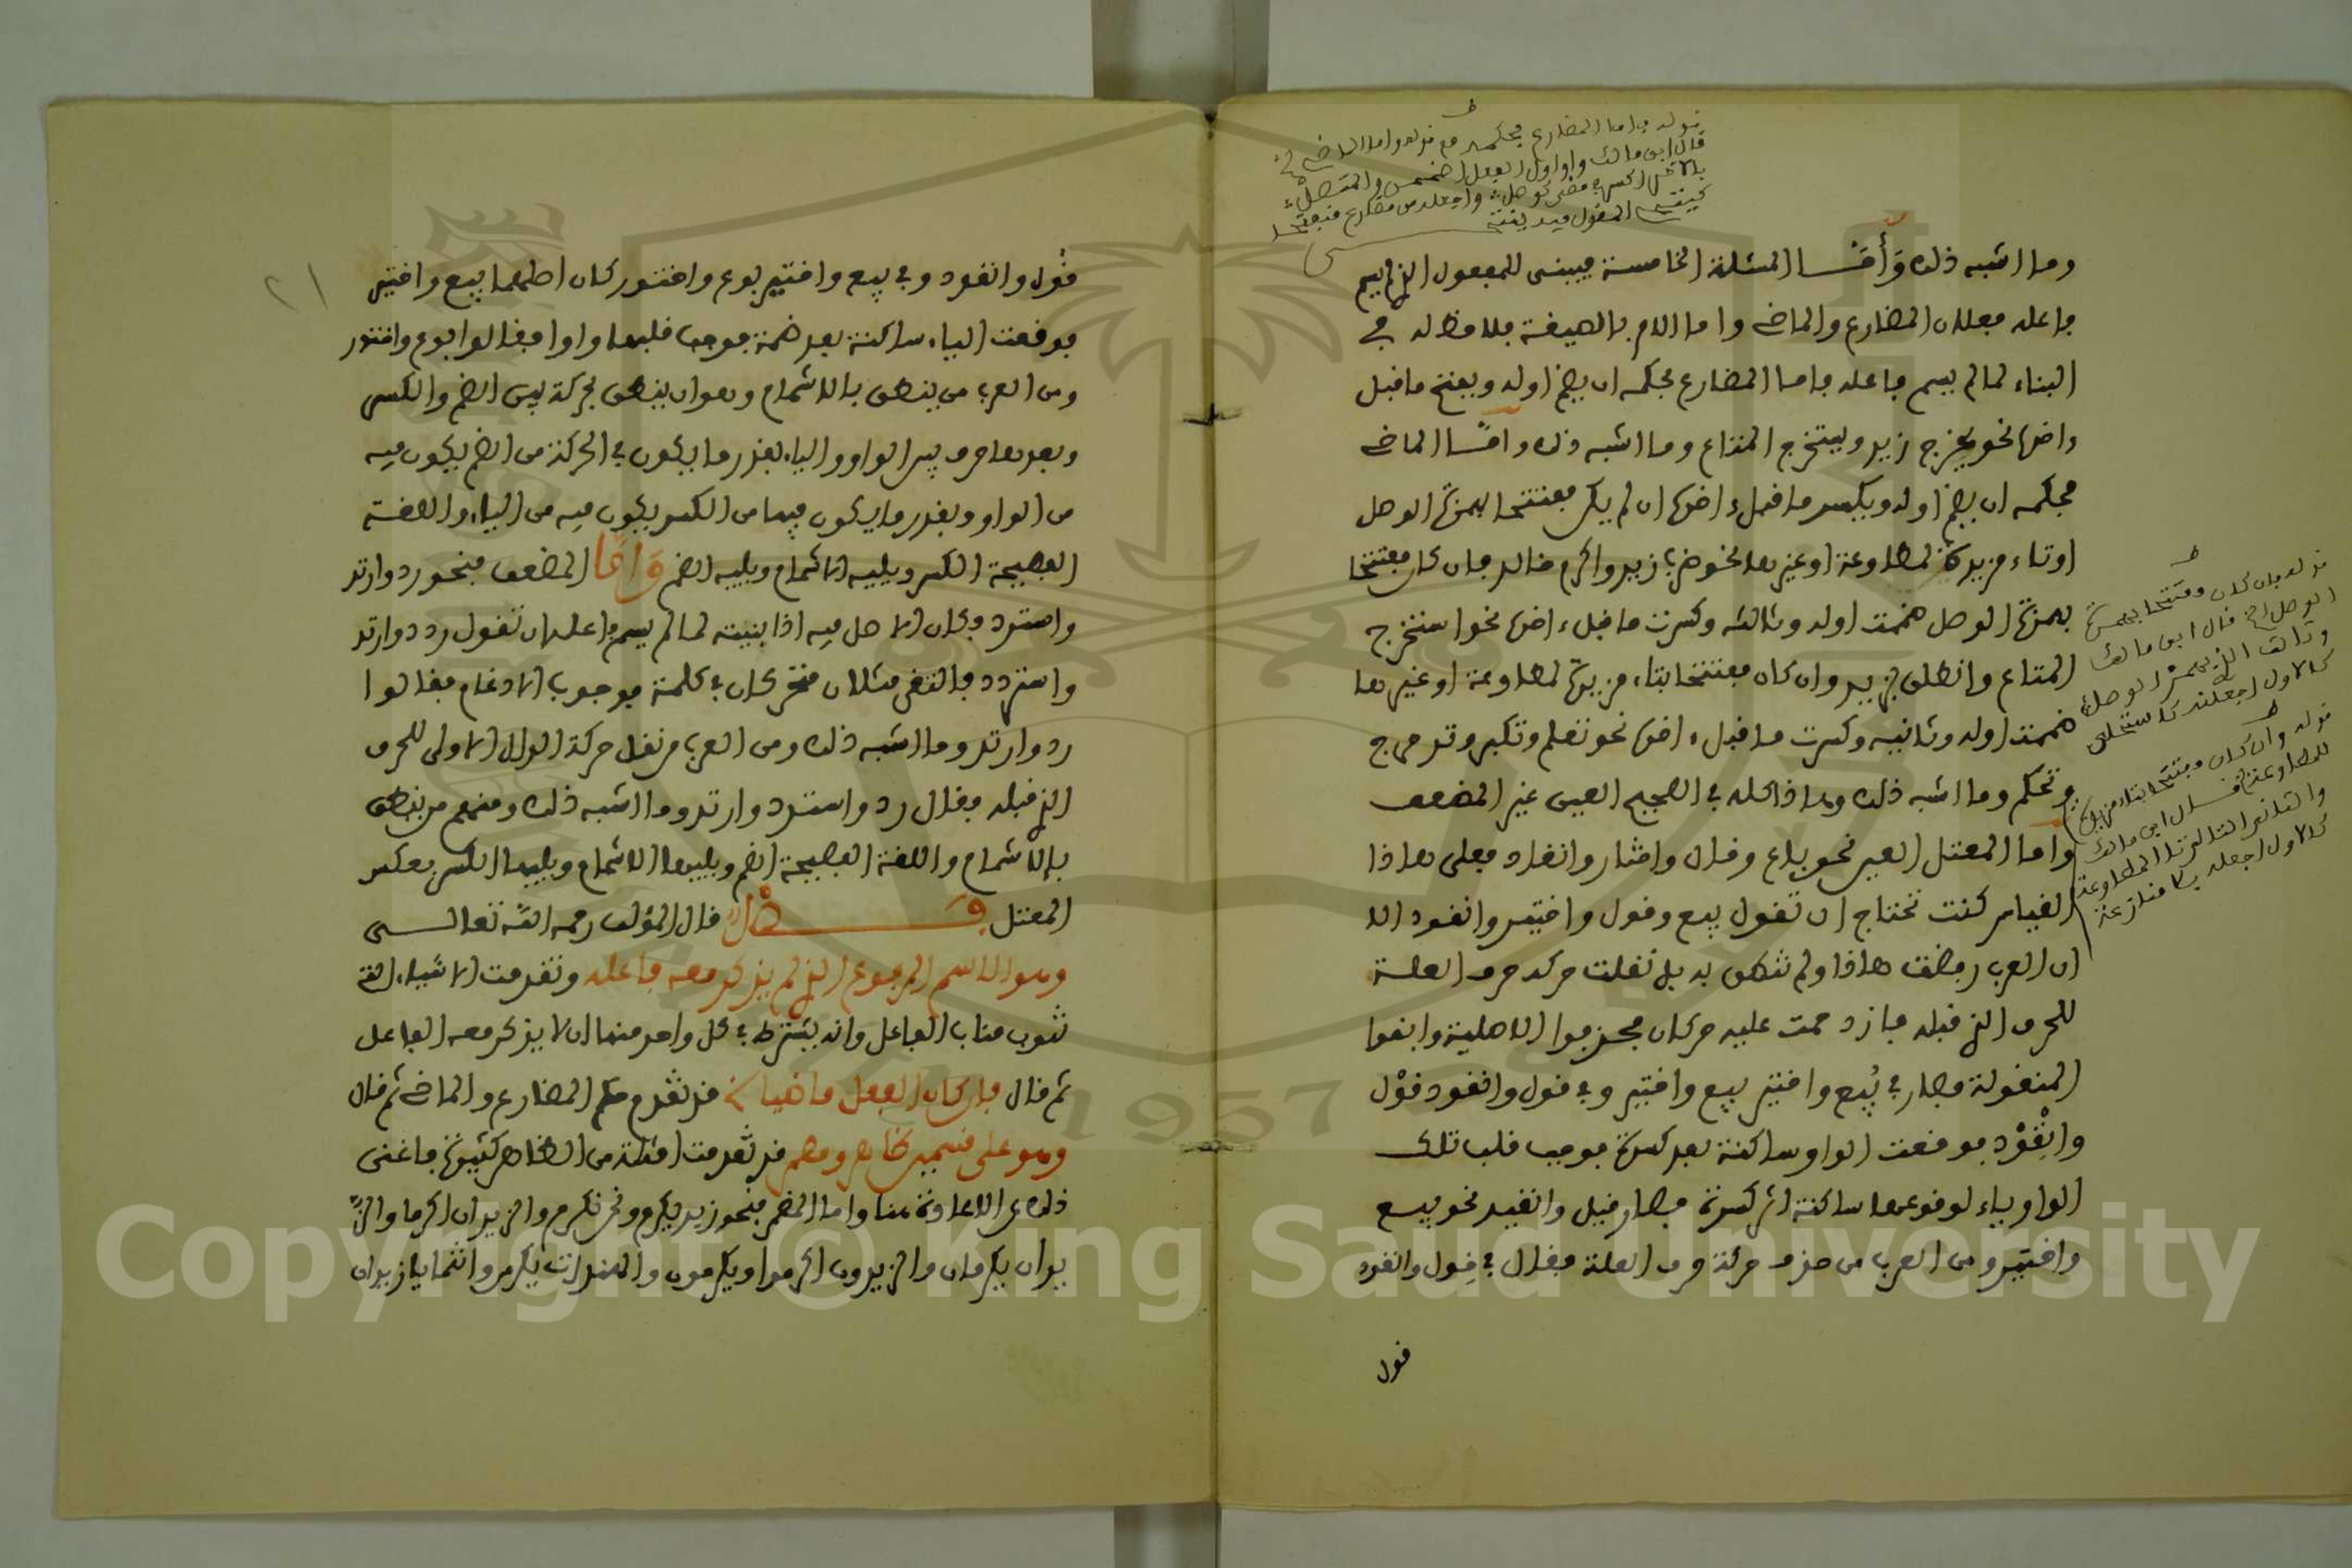 قوله واما المضارع فحكمه مع قوله واما الماضي الخ
قال ابن مالك واول الفعل اضممن والمتصل
بالاخر اكسر في مضي كوصل واجعله من مضارع منفتحا
كينتحي المقول فيه ينتحى
وما اشبه ذلك وأمّا المسئلة الخامسة فيبنى للمفعول الذي لم يسم
فاعله فعلان المضارع والماضي واما الامر بالصيغة فلا مدخل له في
البناء لما لم يسم فاعله فاما المضارع فحكمه ان يضم اوله ويفتح ما قبل
ءاخره نحو يخرج زيد ويستخرج المتاع وما اشبه ذلك وامّا الماضي
فحكمه ان يضم اوله ويكسر ما قبل ءاخره ان لم يكن مفتتحا بهمزة الوصل
او تاء مزيدة لمطاوعة او غيرها نحو ضرب زيد واكرم خالد فان كان مفتتحا
بهمزة الوصل ضممت اوله وثالثه وكسرت ما قبل ءاخره نحو استخرج
المتاع وانطلق بزيد وان كان مفتتحا بتاء مزيدة لمطاوعة او غيرها
ضممت اوله وثانيه وكسرت ما قبل ءاخره نحو تعلم وتكبر وتدحرج
وتحكم وما اشبه ذلك وهذا كله في الصحيح العين غير المضعف
واما المعتل العين نحو باع وقال واختار وانقاد فعلى هاذا
القياس كنت تحتاج ان تقول بيع وقول واختير وانقود الا
ان العرب رفضت هاذا ولم تنطق به بل نقلت حركة حرف العلة
للحرف الذي قبله فازدحمت عليه حركتان فحذفوا الاصلية وابقوا
المنقولة فصار في بُيع واختير بيع واختير وفي قول وانقود قوْل
وانقِوْد فوقعت الواو ساكنة بعد كسرة فوجب قلب تلك
الواو ياء لوقوعها ساكنة اثر كسرة فصار قيل وانقيد نحو بيع
واختير ومن العرب من حذف حركة حرف العلة فقال في قول وانقود
قول
قوله فان كان مفتتحا بهمزة
الوصل الخ قال ابن مالك
وثالث الذي بهمز الوصل
كالاول اجعلنه كاستحلي
قوله وان كان مفتتحا بتاء مزيدة
للمطاوعة قال ابن مالك
والثاني التالي تا المطاوعة
كالاول اجعله بلا منازعة
٢١
قُول وانقود وفي بيع واختير بوع واختور كان اصلهما بيع واختير
فوقعت الياء ساكنة بعد ضمة فوجب قلبها واوا فقالوا بوع واختور
ومن العرب من ينطق بالاشمام وهو ان ينطق بحركة بين الضم والكسر
وبعدها حرف بين الواو والياء بقدر ما يكون في الحركة من الضم يكون فيه
من الواو وبقدر ما يكون فيها من الكسر يكون فيه من الياء واللغة
الفصيحة الكسر ويليه الاشمام ويليه الضم وَامَّا المضعف فنحو رد وارتد
واسترد وكان الاصل فيه اذا بنيته لما لم يسم فاعله ان تقول ردد وارتدد
واستردد فالتقى مثلان متحركان في كلمة فوجب الادغام فقالوا
رد وارتد وما اشبه ذلك ومن العرب من نقل حركة الدال الاولى للحرف
الذي قبله فقال رد واسترد وارتد وما اشبه ذلك ومنهم من ينطق
بالاشمام واللغة الفصيحة الضم ويليها الاشمام ويليها الكسر بعكس
المعتل فصل قال المؤلف رحمه الله تعالى
وهو الاسم المرفوع الذي لم يذكر معه فاعله وتقدمت الاشياء التي
تنوب مناب الفاعل وانه يشترط في كل واحد منها ان لا يذكر معه الفاعل
ثم قال فان كان الفعل ماضيا الخ قد تقدم حكم المضارع والماضي ثم قال
وهو على قسمين ظاهر ومضمر قد تقدمت امثلة من الظاهر كثيرة فاغنى
ذلك عن الاعادة هنا واما المضمر فنحو زيد يكرم ونحن نكرم والزيدان اكرما والز
يدان يكرمان والزيدون اكرموا ويكرمون والهندات يكرمن وانتما يا زيدان